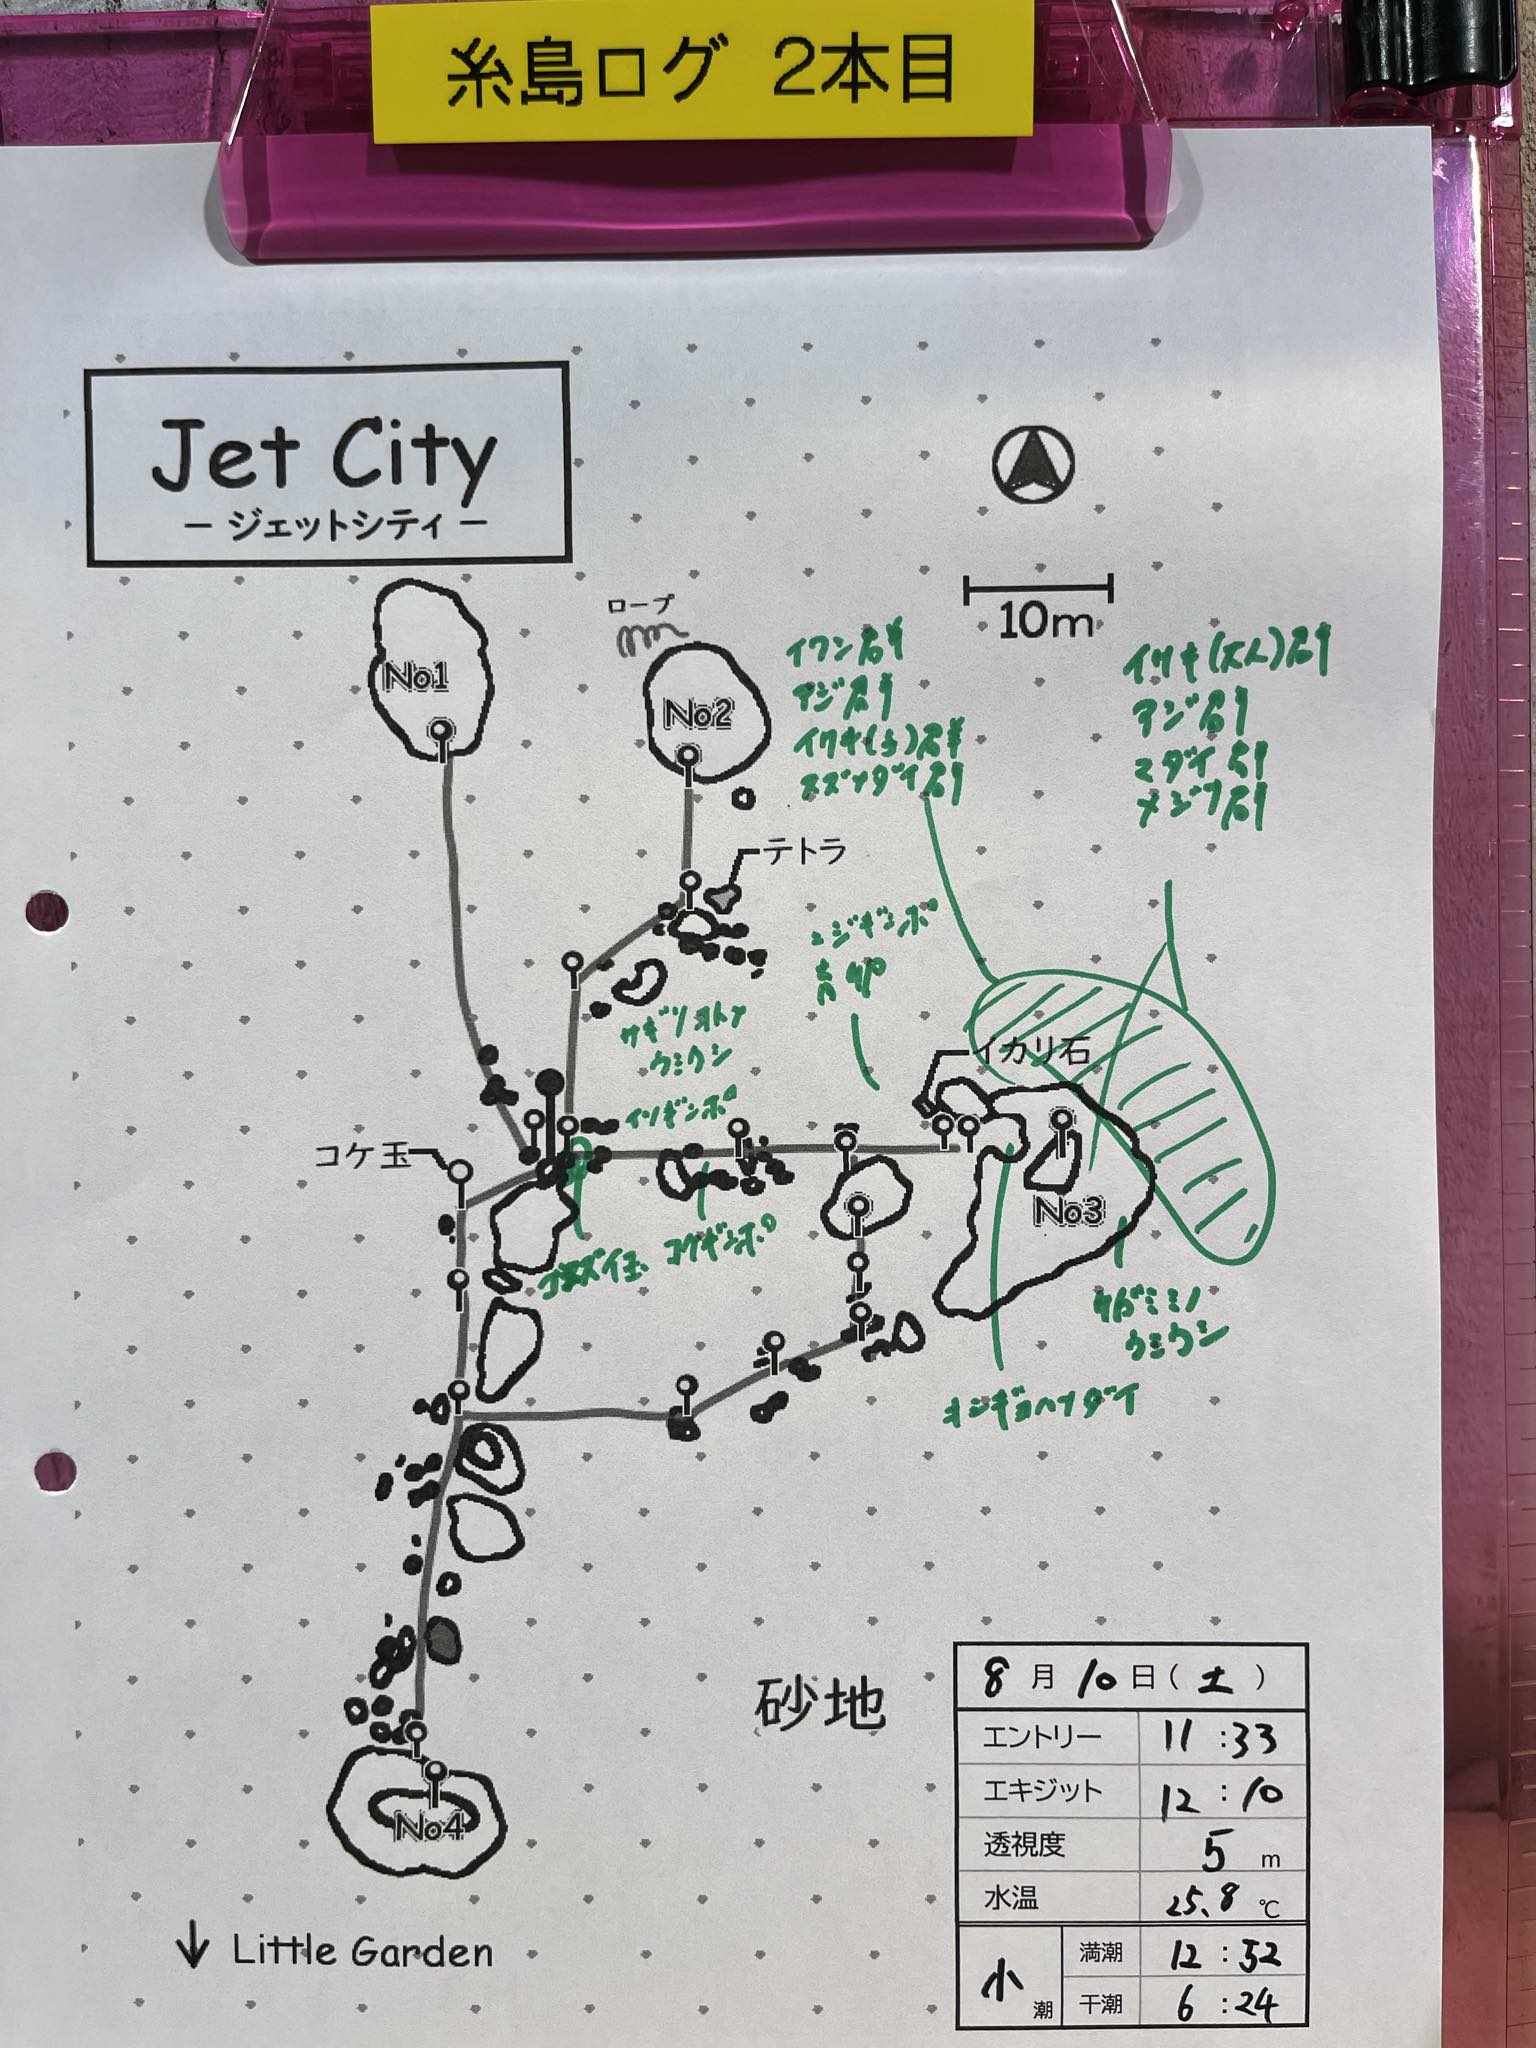 糸島ログ 2本目
Jet City
－ジェットシティ－
10m
ロープ
No1
No2
イワシ群
アジ群
イサキ(小)群
スズメダイ群
イサキ(大人)群
アジ群
マダイ群
メジナ群
テトラ
ニジギンポ
育卵
サギリオトメ
ウミウシ
イソギンポ
イカリ石
コケ玉
No3
コケギンポ
サガミミノ
ウミウシ
キンギョハナダイ
砂地
No4
↓ Little Garden
8月10日(土)
エントリー 11:33
エキジット 12:10
透視度 5 m
水温 25.8 ℃
小潮 満潮 12:52
干潮 6:24